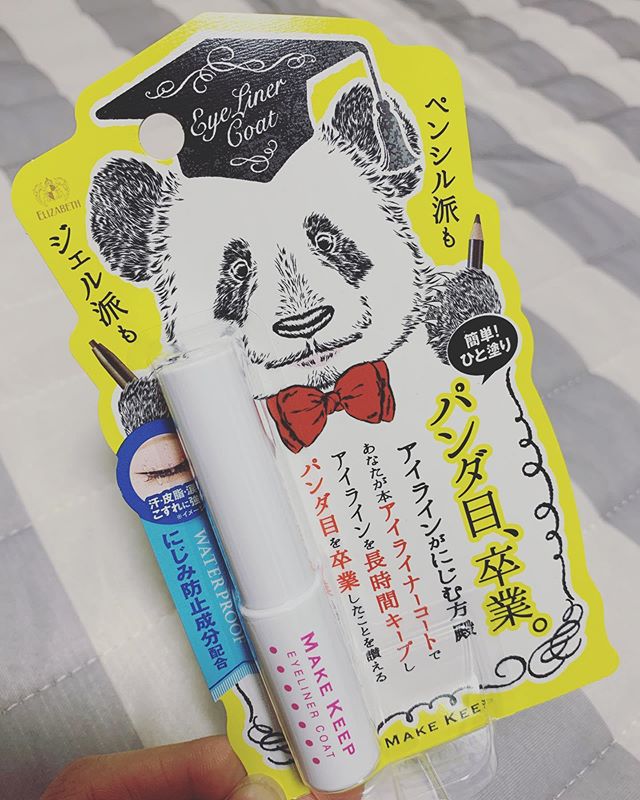 Eye Liner
Coat
ELIZABETH
ペンシル派も
ジェル派も
簡単!
ひと塗り
パンダ目、卒業。
アイラインがにじむ方 殿
あなたが本アイライナーコートで
アイラインを長時間キープし
パンダ目を卒業したことを讃える
汗・皮脂・
こすれに強
※イメー
WATERPROOF
にじみ防止成分配合
MAKE KEEP
EYELINER COAT
MAKE KEEP